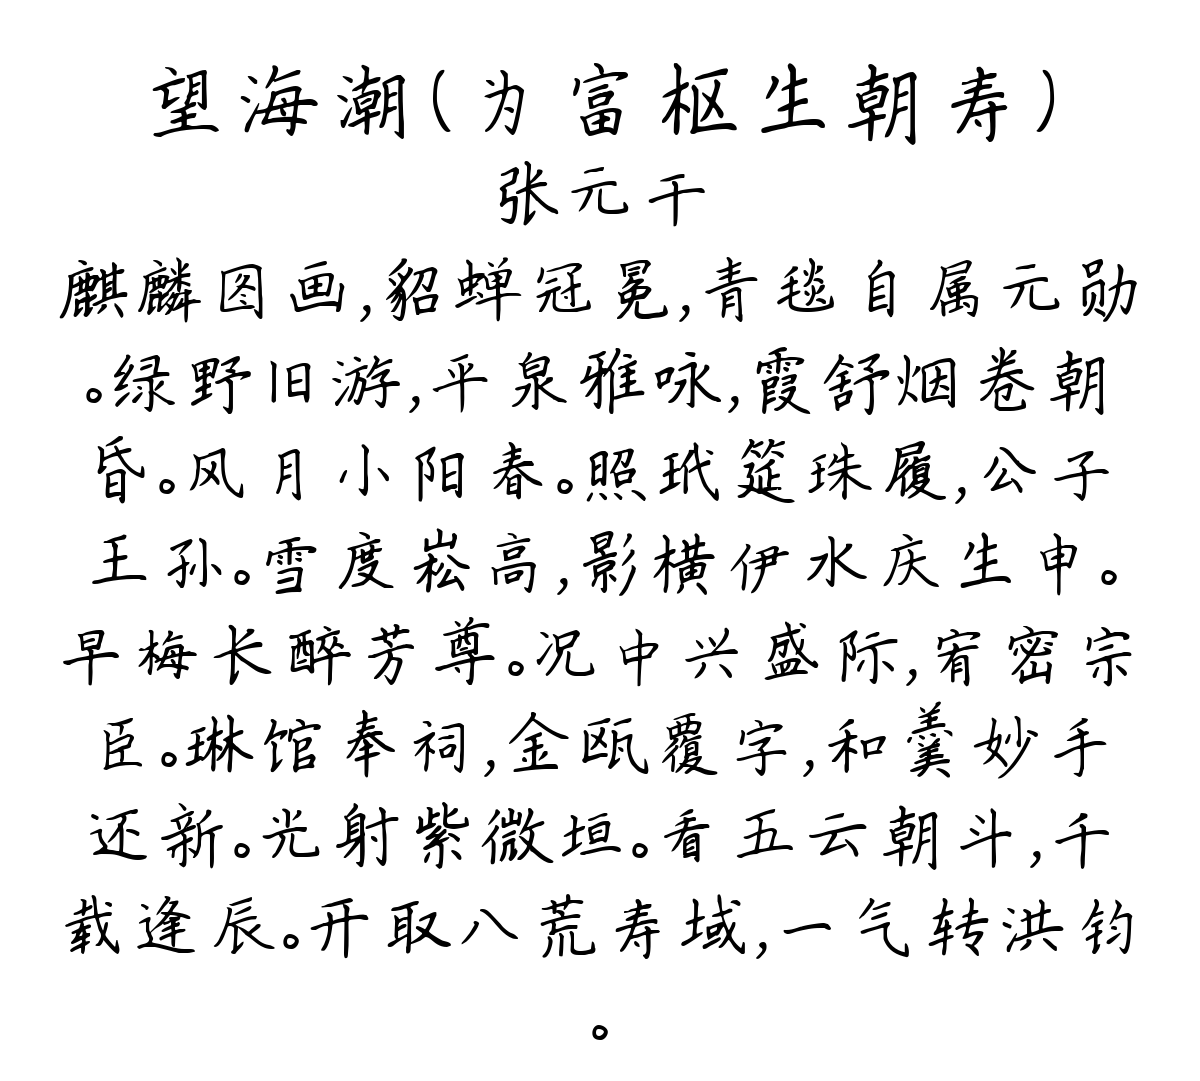 望海潮(为富枢生朝寿)
张元干
麒麟图画,貂蝉冠冕,青毯自属元勋
。绿野旧游,平泉雅咏,霞舒烟卷朝
昏。风月小阳春。照玳筵珠履,公子
王孙。雪度崧高,影横伊水庆生申。
早梅长醉芳尊。况中兴盛际,宥密宗
臣。琳馆奉祠,金瓯覆字,和羹妙手
还新。光射紫微垣。看五云朝斗,千
载逢辰。开取八荒寿域,一气转洪钧
。